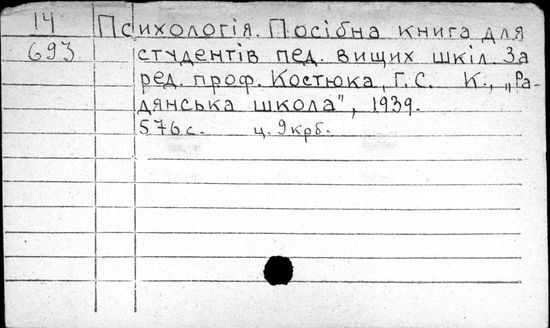 14 Психологія. Посібна книга для
693 студентів пед. вищих шкіл. За
ред. проф. Костюка, Г.С. К., „Ра-
дянська школа", 1939.
576 с. ц. 9 крб.